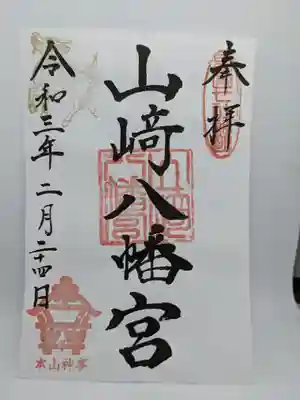 奉拝
山﨑八幡宮
令和三年二月二十四日
本山神事